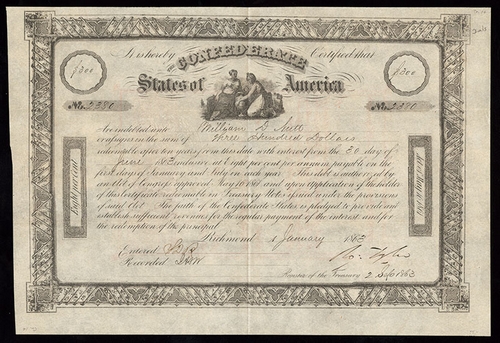 It is hereby Certified that
THE CONFEDERATE
States of America
$300 $300
No. 2380 No. 2380
Are indebted unto William B. Nutt
or assigns in the sum of Three Hundred Dollars
redeemable after ten years from this date with interest from the 30 day of
June 1863 inclusive at Eight per cent per annum payable on the
first days of January and July on each year. This debt is authorized by
an Act of Congress approved May 16 1861 and upon application of the holder
of this certificate redeemable in Treasury Notes issued under the provisions
of said Act. The faith of the Confederate States is pledged to provide and
establish sufficient revenues for the regular payment of the interest and for
the redemption of the principal
Richmond 1 January 1863
Entered
Recorded
Ro. Tyler
Register of the Treasury 2 Sep 1863
Eight per cent